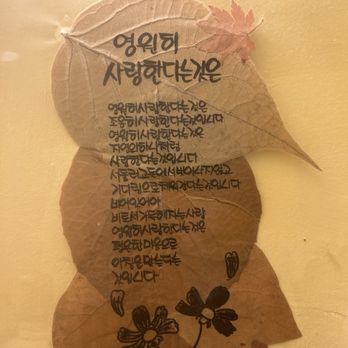 영원히
사랑한다는것은
영원히사랑한다는것은
조용히사랑한다는것입니다
영원히사랑한다는것은
자연의하나처럼
사랑한다는것입니다
서둘러고독에서벗어나지않고
기다림으로채워간다는것입니다
비어있어야
비로서가득해지는사랑
영원히사랑한다는것은
평온한마음으로
아침을맞는다는
것입니다